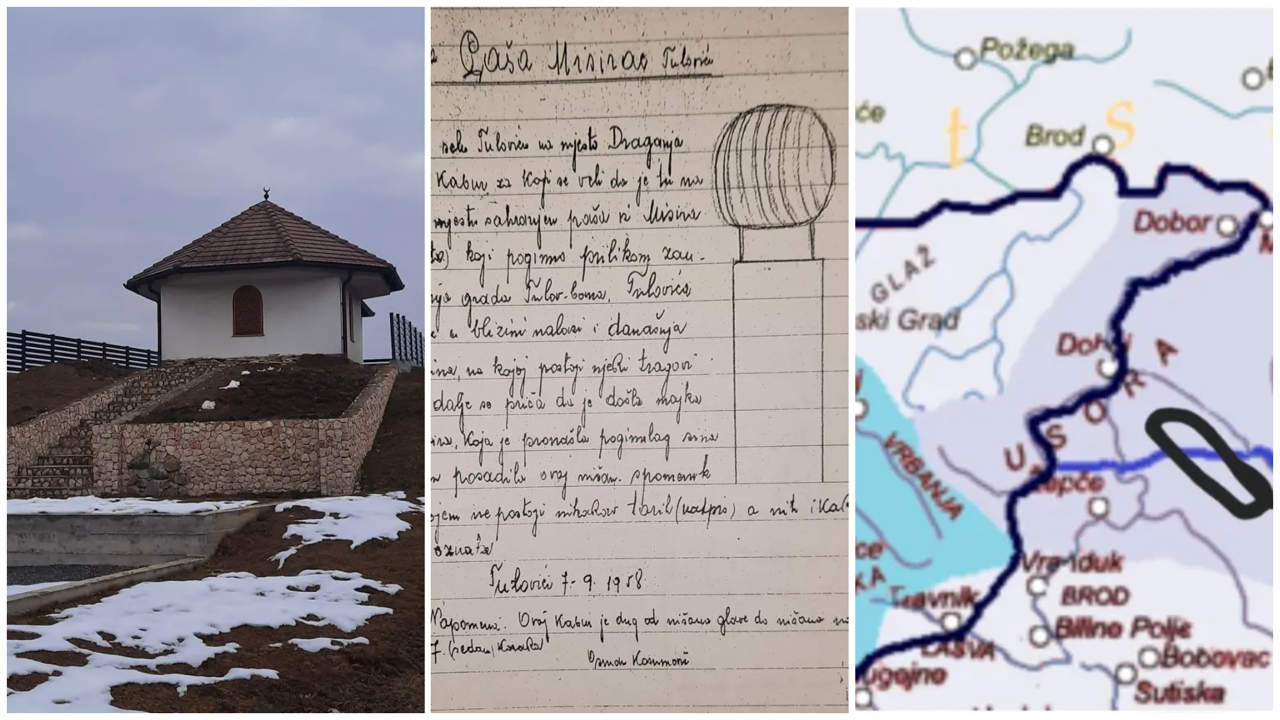 Paša Misirac Tulovići
selu Tulovići na mjesto Draganja
Kabur, za koji se veli da je tu na
mjestu sahranjen paša iz Misira
koji poginuo prilikom zau-
grada Tulov-bana, Tulovića
u blizini nalazi i današnja
na kojoj postoji njeki tragovi
dalje se priča da je došla majka
koja je pronašla poginulog sina
posadila ovaj nišan. spomenik
ne postoji nikakav tarih (natpis) a niti i
Tulovići 7-9. 1958
Napomena. Ovaj Kabur je dug od nišana glave do nišana
7. (sedam) Koraka
Osman
Požega
će
t
s
Brod
Dobor
M
GLAŽ
ski Grad
USORA
VRBANJA
Vranduk
BROD
Travnik
LAŠVA
Biline Polje
Bobovac
Sutiska
ugojno